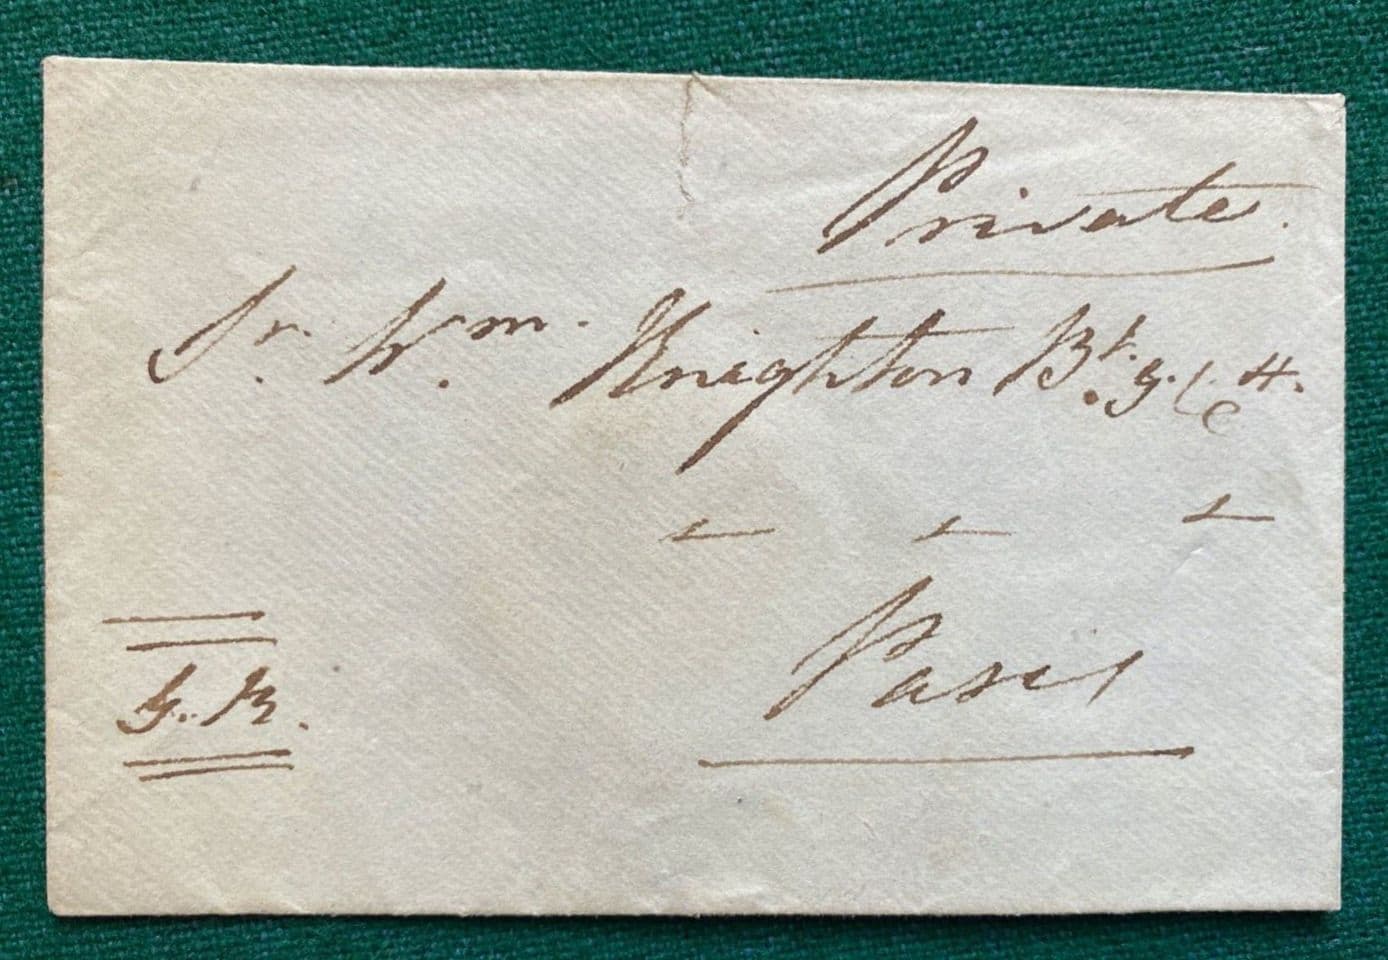 Private.
Sr. Wm. Knighton Bt. G.C.H.
Paris
G.R.